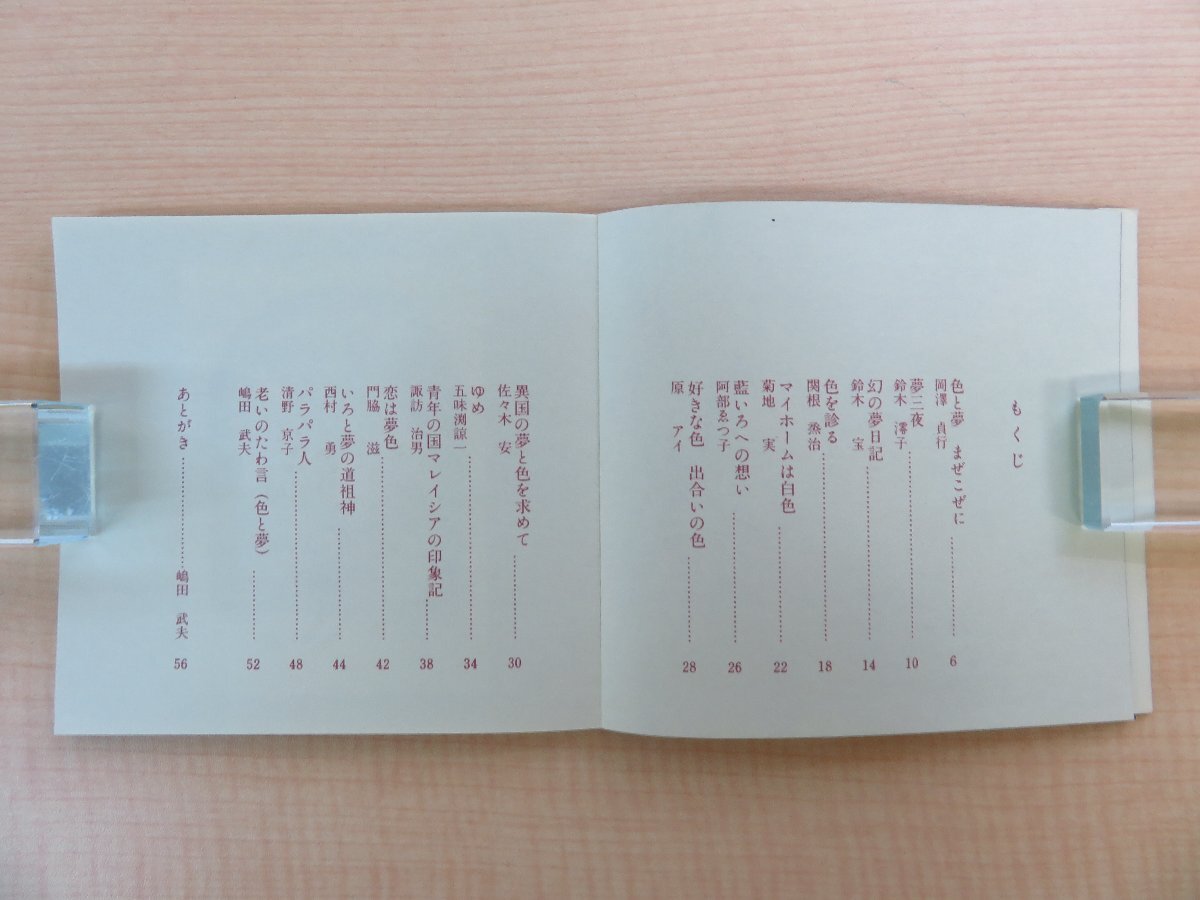 もくじ
色と夢　まぜこぜに…………6
岡澤　貞行
夢三夜…………10
鈴木　澪子
幻の夢日記…………14
鈴木　宝
色を診る…………18
関根　烝治
マイホームは白色…………22
菊地　実
藍いろへの想い…………26
阿部ゑつ子
好きな色　出合いの色…………28
原　アイ
異国の夢と色を求めて…………30
佐々木　安
ゆめ…………34
五味渕諒一
青年の国マレイシアの印象記…………38
諏訪　治男
恋は夢色…………42
門脇　滋
いろと夢の道祖神…………44
西村　勇
パラパラ人…………48
清野　京子
老いのたわ言（色と夢）…………52
嶋田　武夫
あとがき…………嶋田　武夫　56